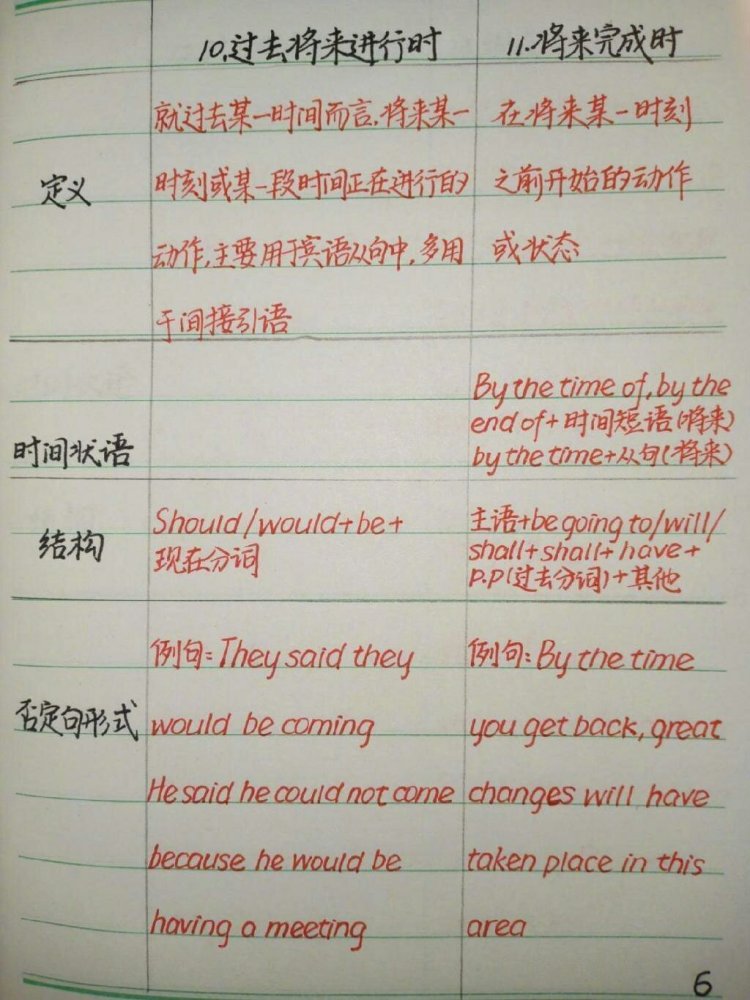 10.过去将来进行时
11.将来完成时
定义
就过去某一时间而言,将来某一
时刻或某一段时间正在进行的
动作,主要用于宾语从句中,多用
于间接引语
在将来某一时刻
之前开始的动作
或状态
时间状语
By the time of, by the
end of+时间短语(将来)
by the time+从句(将来)
结构
Should/would+be+
现在分词
主语+be going to/will/
shall+shall+have+
p.p(过去分词)+其他
否定句形式
例句:They said they
would be coming
He said he could not come
because he would be
having a meeting
例句:By the time
you get back, great
changes will have
taken place in this
area
6